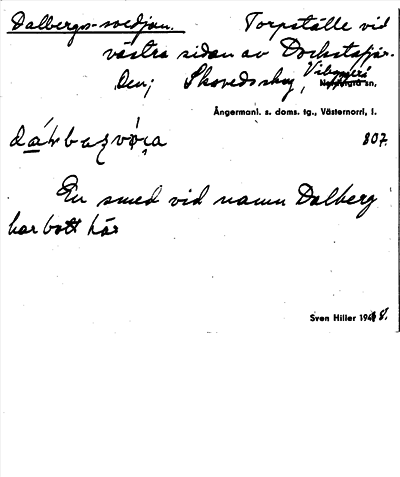 Dalbergs-svedjan. Torpställe vid
västra sidan av Dockstafjär-
den; Skovedsskog, Vibyggerå
Nordingrå sn.
Ångermanl. s. doms. tg., Västernorrl. l.
807.
En smed vid namn Dalberg
har bott här
Sven Hiller 1948.